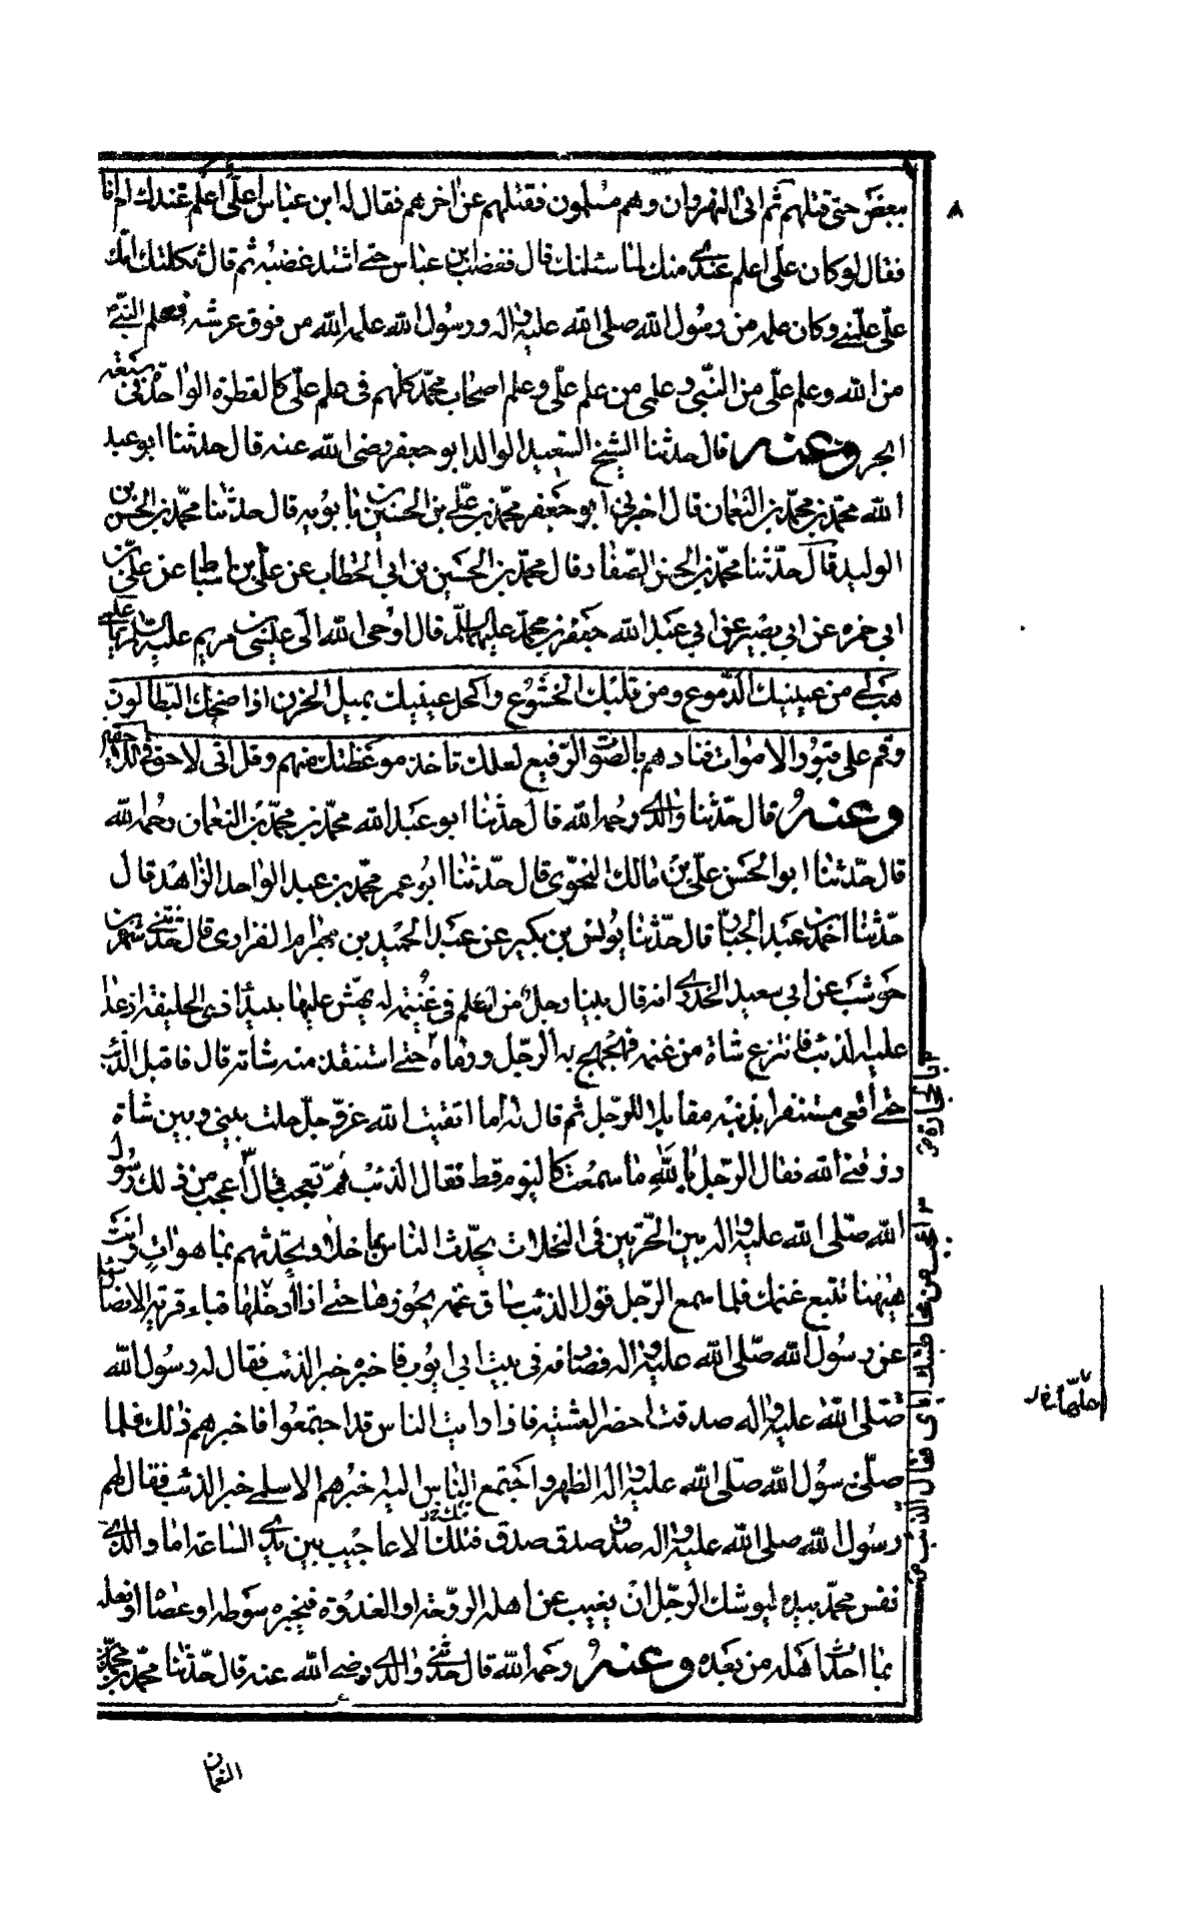 ٨
ببعض حتى قتلهم ثم اتى النهروان وهم مسلمون فقتلهم عن اخرهم فقال له ابن عباس اعلىّ اعلم عندك ام انا
فقال لو كان علّى اعلم عندى منك لما سئلتك قال فغضب ابن عباس حتى اشتد غضبه ثم قال ثكلتك امّك
علّى علّمنى وكان علمه من رسول الله صلى الله عليه واله ورسول الله علمه الله من فوق عرشه فعلم النبّى
من الله وعلم علّى من النّبى وعلمى من علم علّى وعلم اصحاب محمّد كلهم فى علم علّى كالقطرة الواحدة فى سبعة
ابحر وعنه قال حدثنا الشيخ السّعيد الوالد ابو جعفر رضى الله عنه قال حدثنا ابو عبد
الله محمّد بن محمّد بن النّعمان قال اخبرنى ابو جعفر محمّد بن علّى بن الحسين بن بابويه قال حدثنا محمّد بن الحسن بن
الوليد قال حدّثنا محمّد بن الحسن الصّفار قال محمّد بن الحسين بن ابى الخطاب عن علّى بن اسباط عن علّى بن
ابى حمزه عن ابى بصير عن ابى عبد الله جعفر بن محمّد عليهما السلم قال اوحى الله الى عيسى بن مريم عليه السلم يا عيسى
هب لى من عينيك الدّموع ومن قلبك الخشوع واكحل عينيك بميل الحزن اذا ضحك البطّالون
وقم على قبور الاموات فنادهم بالصّوت الرّفيع لعلك تاخذ موعظتك منهم وقل انّى لاحق فى اللاحقين
وعنه قال حدّثنا والدى رحمه الله قال حدّثنا ابو عبد الله محمّد بن محمّد بن النعمان رحمه الله
قال حدّثنا ابو الحسن علّى بن مالك النحوّى قال حدّثنا ابو عمر محمّد بن عبد الواحد الزّاهد قال
حدّثنا احمد بن عبد الجبار قال حدّثنا يونس بن بكير عن عبد الحميد بن بهرام الفزارى قال حدّثنى شهر بن
حوشب عن ابى سعيد الخدرى انه قال بينا رجل من اسلم فى غنيمة له يهشّ عليها ببيداء ذى الحليفة اذ عدا
عليه الذئب فانتزع شاة من غنمه فهجهج به الرّجل ورماه حتى استنقذ منه شاته قال فاقبل الذئب
حتى اقعى مستثفرا بذنبه مقابلا للرّجل ثم قال له اما اتقيت الله عزّ وجلّ حلت بينى وبين شاة
رزقنى الله فقال الرّجل يالله ما سمعت كاليوم قط فقال الذئب ممّ تعجب قال اعجب من ذلك رسول
الله صلّى الله عليه واله بين الحرّتين فى النخلات يحدّث الناس بما خلا ويحدّثهم بما هوات وانت
هيهنا تتبع غنمك فلما سمع الرّجل قول الذئب ساق غنمه يحوزها حتى اذا ادخلها قباء قرية الانصار سئل
عن رسول الله صلّى الله عليه واله فصادفه فى بيت ابى ايّوب فاخبره خبر الذئب فقال له رسول الله
صلّى الله عليه واله صدقت احضر العشية فاذا رايت الناس قد اجتمعوا فاخبرهم ذلك فلما
صلّى رسول الله صلّى الله عليه واله الظهر واجتمع الناس اليه اخبرهم الاسلمى خبر الذئب فقال لهم
رسول الله صلى الله عليه واله صدق صدق صدق فتلك الاعاجيب بين يدى الساعة اما والذى
نفس محمّد بيده ليوشك الرّجل ان يغيب عن اهله الروحة او الغدوة فيخبره سوطه او عصاه او نعله
بما احدث اهله من بعده وعنه رحمه الله قال حدّثنى والدى رضى الله عنه قال حدّثنا محمّد بن محمّد بن
النعمان